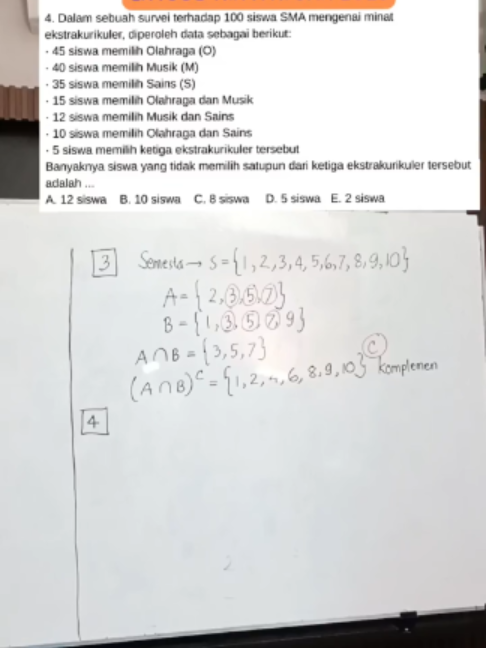 4. Dalam sebuah survei terhadap 100 siswa SMA mengenai minat
ekstrakurikuler, diperoleh data sebagai berikut:
· 45 siswa memilih Olahraga (O)
· 40 siswa memilih Musik (M)
· 35 siswa memilih Sains (S)
· 15 siswa memilih Olahraga dan Musik
· 12 siswa memilih Musik dan Sains
· 10 siswa memilih Olahraga dan Sains
· 5 siswa memilih ketiga ekstrakurikuler tersebut
Banyaknya siswa yang tidak memilih satupun dari ketiga ekstrakurikuler tersebut
adalah ...
A. 12 siswa B. 10 siswa C. 8 siswa D. 5 siswa E. 2 siswa
3 Semesta → S = {1, 2, 3, 4, 5, 6, 7, 8, 9, 10}
A = { 2, 3, 5, 7 }
B = { 1, 3, 5, 7, 9 }
A ∩ B = {3, 5, 7}
(A ∩ B)ᶜ = {1, 2, 4, 6, 8, 9, 10} C komplemen
4